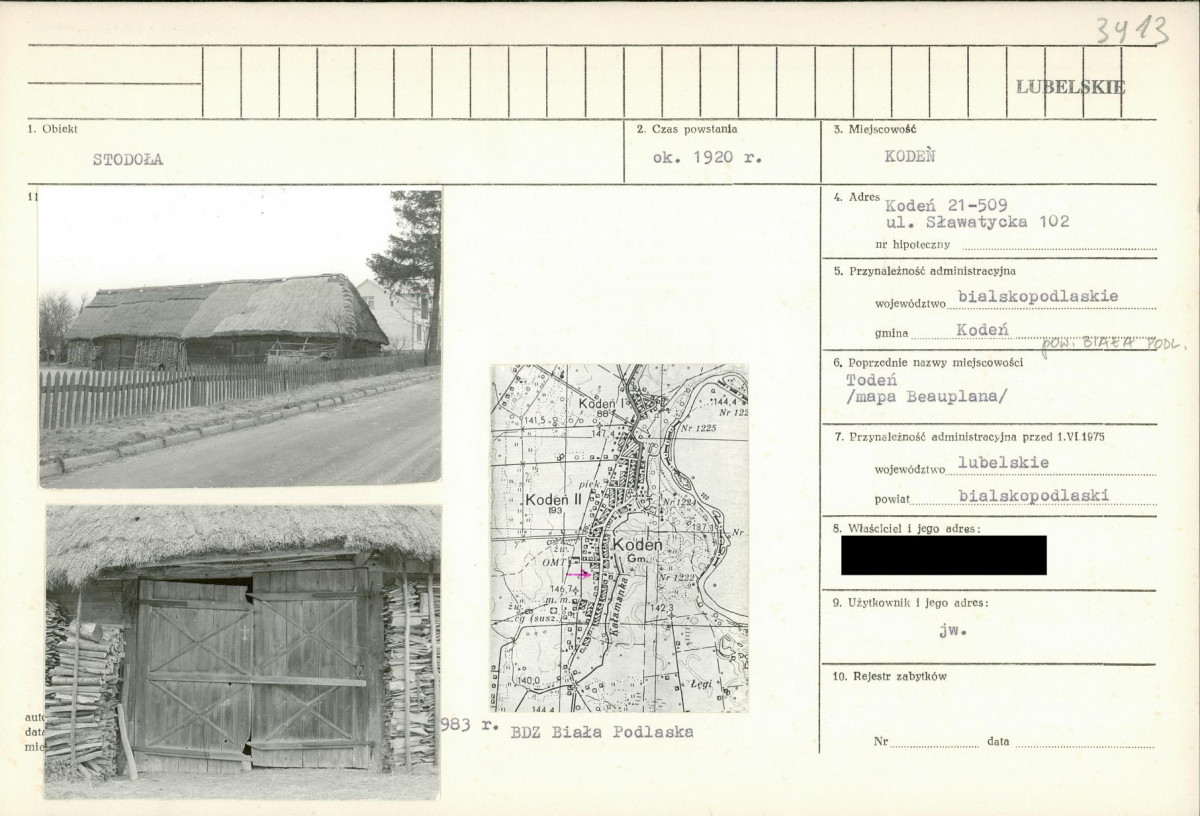 3413
LUBELSKIE
1. Obiekt
STODOŁA
2. Czas powstania
ok. 1920 r.
3. Miejscowość
KODEŃ
11
4. Adres
Kodeń 21-509
ul. Sławatycka 102
nr hipoteczny
5. Przynależność administracyjna
województwo bialskopodlaskie
gmina Kodeń
pow. BIAŁA PODL.
6. Poprzednie nazwy miejscowości
Todeń
/mapa Beauplana/
7. Przynależność administracyjna przed 1.VI 1975
województwo lubelskie
powiat bialskopodlaski
8. Właściciel i jego adres:
9. Użytkownik i jego adres:
jw.
10. Rejestr zabytków
Nr data
Kodeń I
88
144,4
Nr 122
141,5
Nr 1225
147,4
piek.
Kodeń II
193
Nr 1224
137,1
Nr
żw.
Kodeń
Gm.
OMT
Nr 1222
146,7
m. m.
Kałamanka
142,3
żw.
cg (susz.
140,0
144,4
Łęgi
auto
data
mie
983 r.
BDZ Biała Podlaska